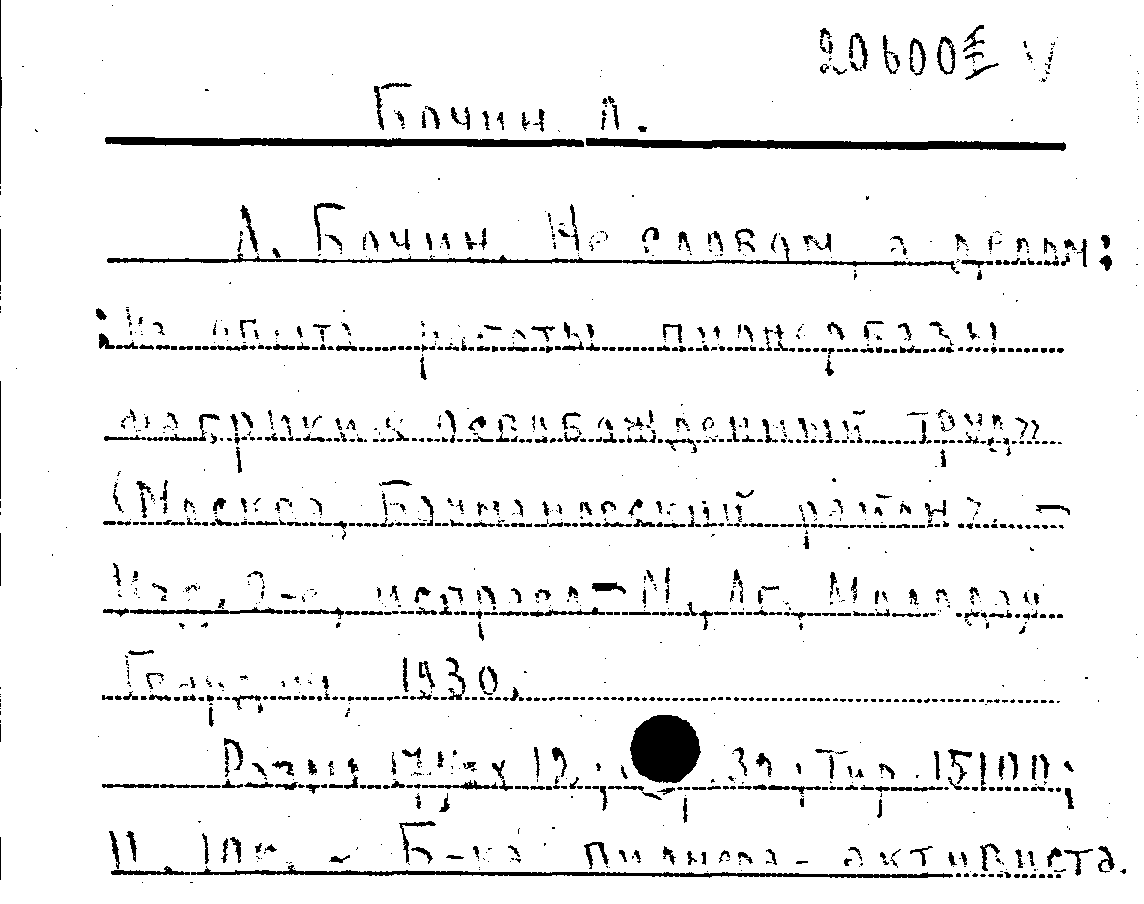 20600 V
Бочин А.
А. Бочин. Не словом, а делом:
: Из опыта работы пионербазы
фабрики « Освобожденный труд»
(Москва, Бауманский район). –
Изд. 2-е, исправл. – М., Мл.
1930.
Разм 12; 32; Тир. 15100;
Ц. 10к. – Б-ка пионера-активиста.